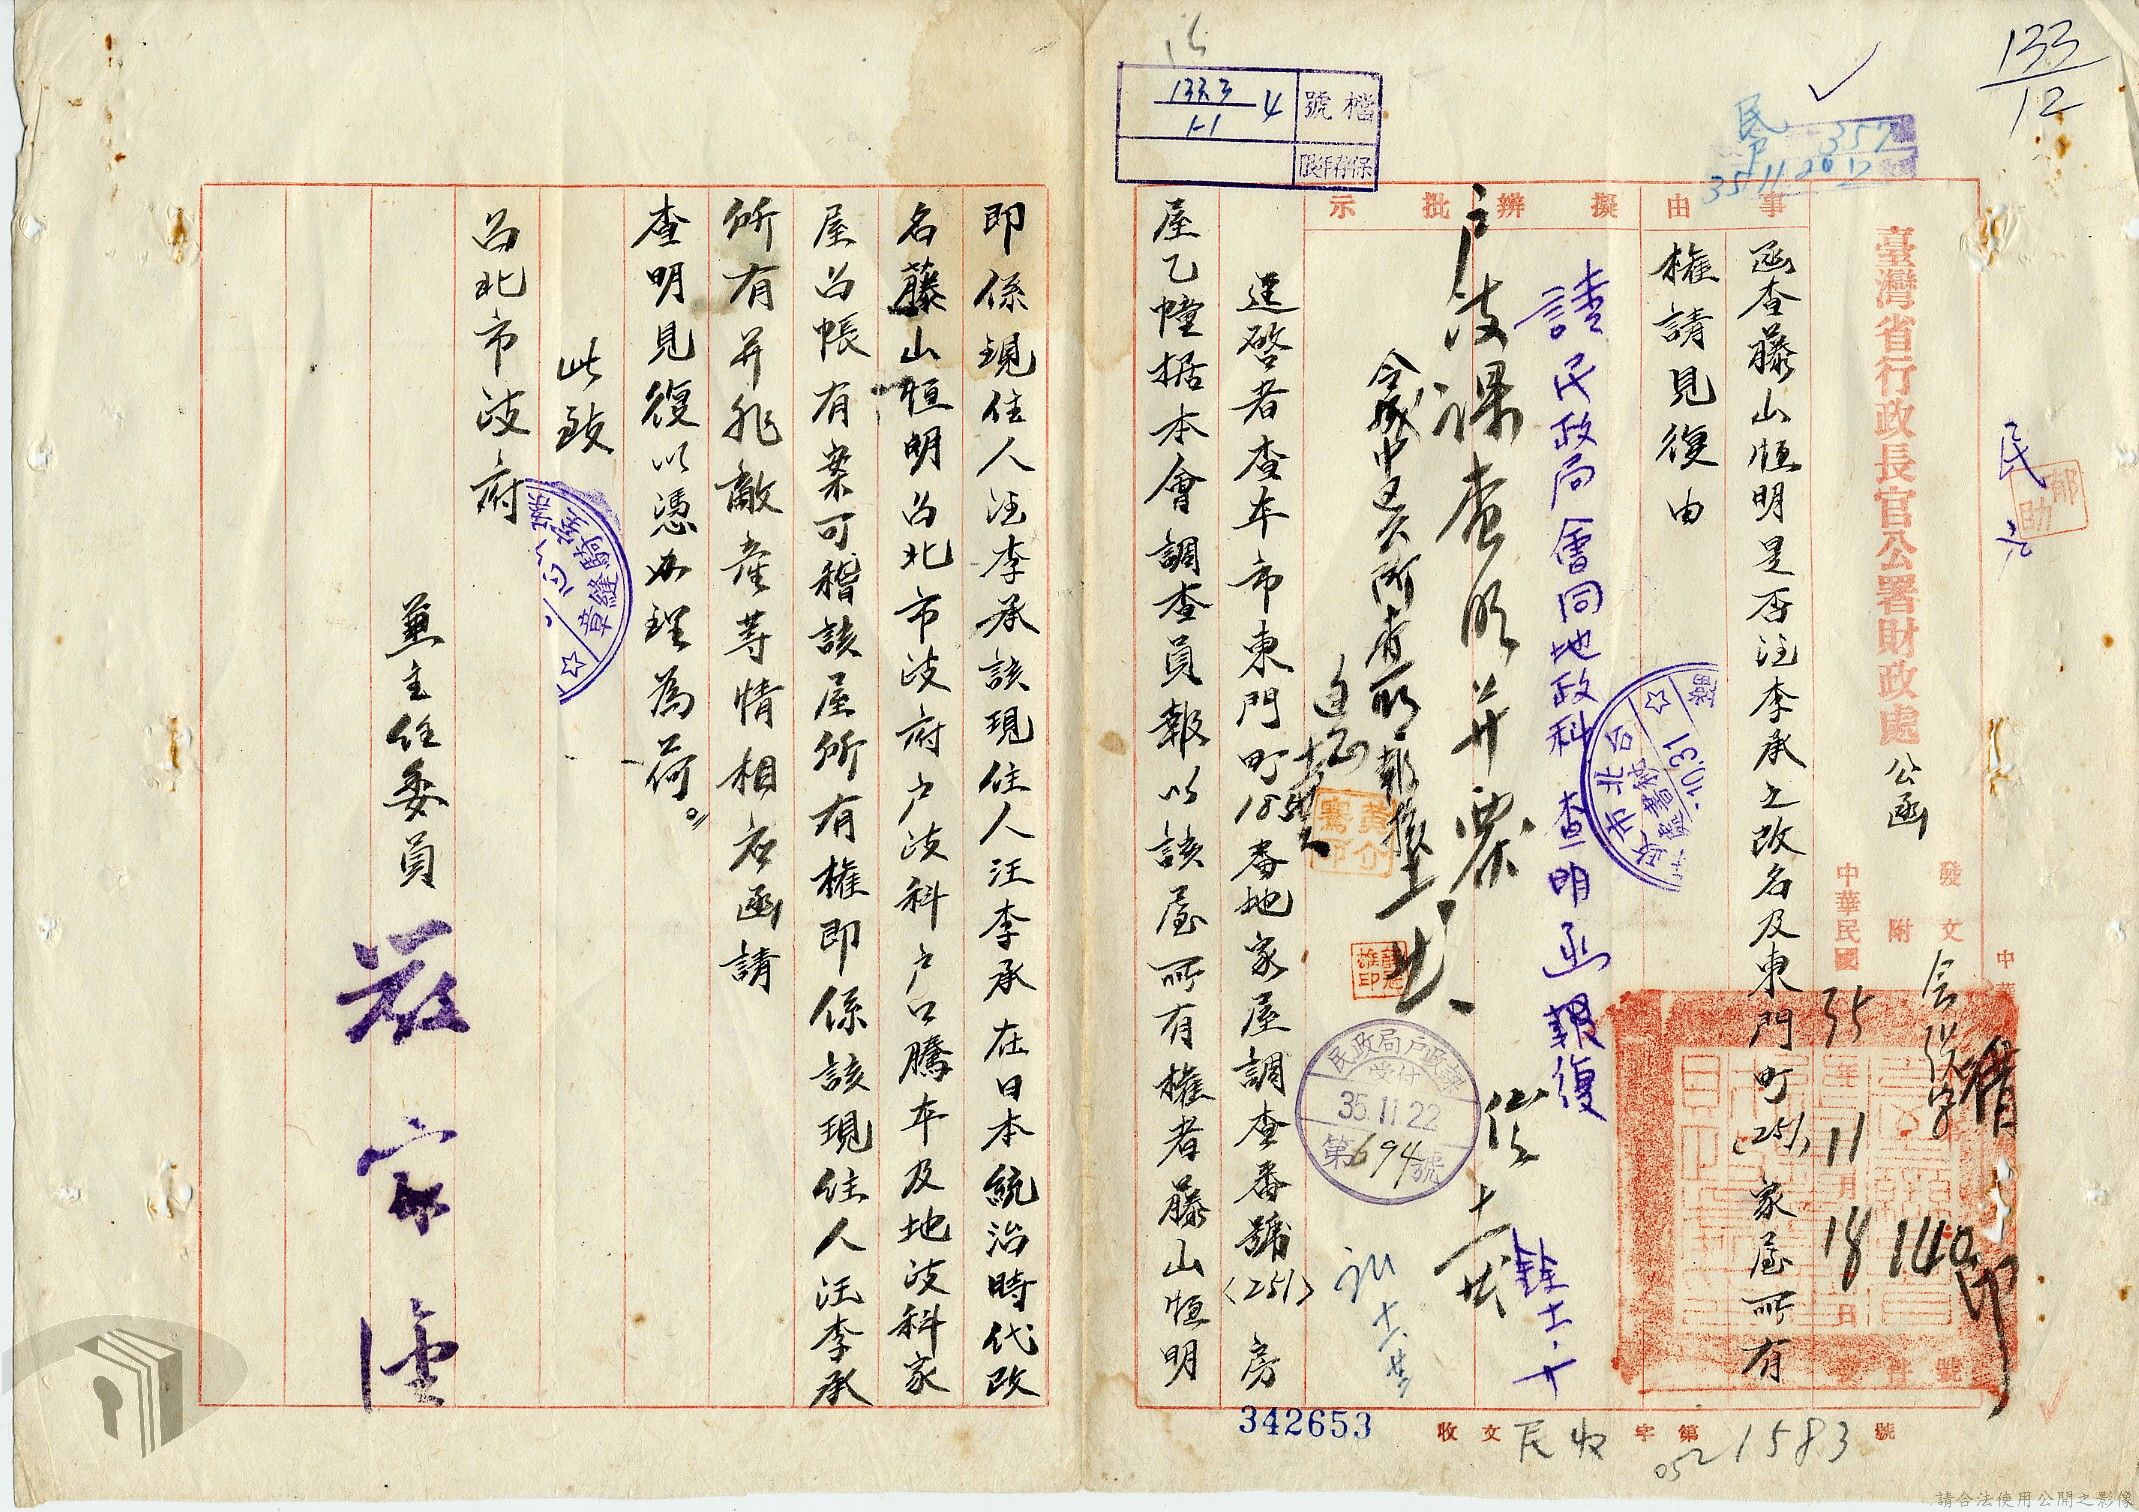 133
12
民 357
35 11 20
檔號 133.3 4
1-1
保存年限
臺灣省行政長官公署財政處公函
事由
擬辦
批示
發文
附
中華民國35年11月18日
140
印
函查藤山恒明是否汪李承之改名及東門町(251)家屋所有
權請見復由
請民政局會同地政科查明函報復
户政課查明并票
逕啓者查本市東門町185番地家屋調查番號(251)房
屋乙幢据本會調查員報以該屋所有權者藤山恒明
即係現住人汪李承該現住人汪李承在日本統治時代改
名藤山恒明台北市政府户政科户口騰本及地政科家
屋台帳有案可稽該屋所有權即係該現住人汪李承
所有并非敵產等情相應函請
查明見復以憑办理為荷。
此致
台北市政府
兼主任委員 嚴家淦
民政局戶政課
受付
35.11.22
第694號
章縫騎
342653
收文民收字第1583號
052
請合法使用公開之影像